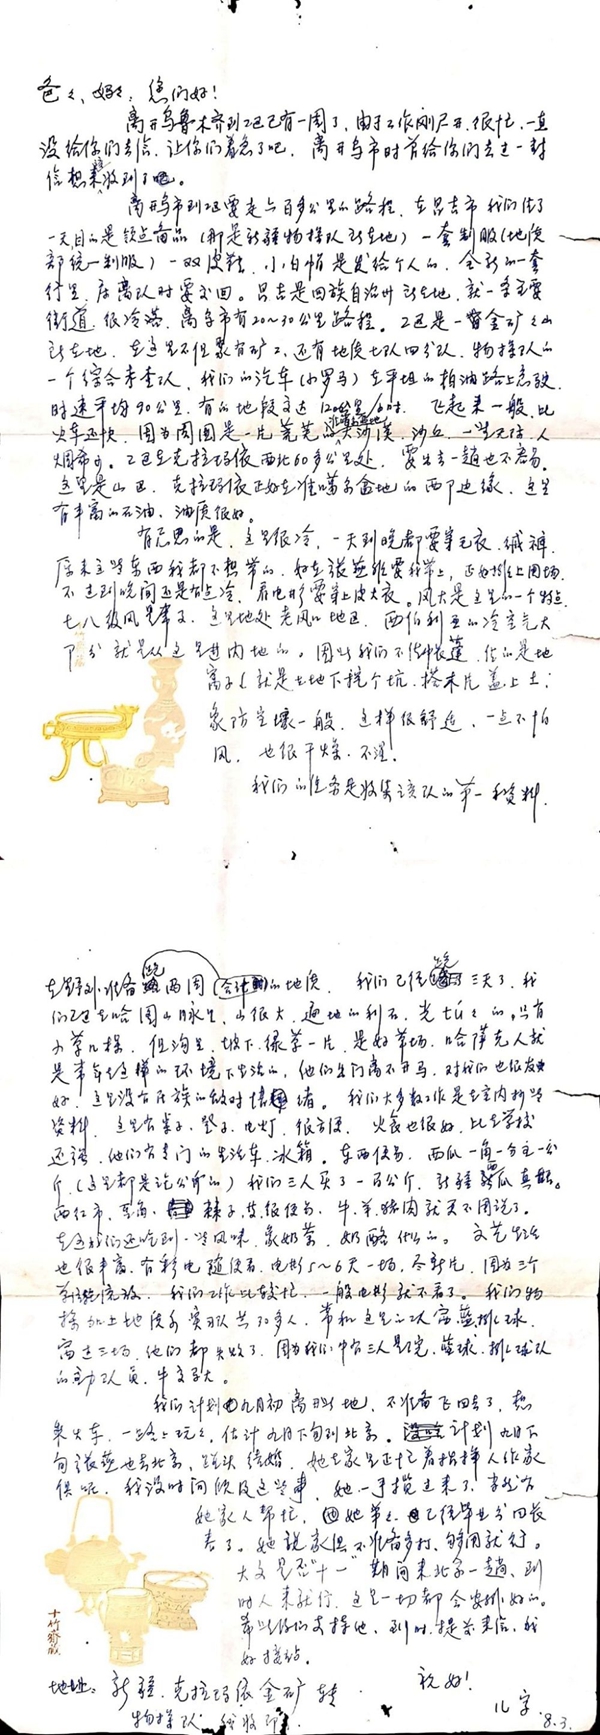 爸々、妈々：您们好！
离开乌鲁木齐到工区已有一周了，由于工作刚展开，很忙，一直
没给你们去信，让你们着急了吧。离开乌市时曾给你们去过一封
信想来收到了吧。
离开乌市到工区要走六百多公里的路程，在昌吉市我们住了
一天目的是领点备品（那是新疆物探队所在地）一套制服（地质
部统一制服）一双皮鞋，小白帽是发给个人的，全新的一套
行李，后离队时要交回。昌吉是回族自治州所在地，就一条主要
街道，很冷落，离乌市有20～30公里路程。工区是一金矿
所在地，在这里不但驻有矿工，还有地质七队四分队，物探队的
一个综合普查队，我们的汽车（小罗马）在平坦的柏油路上急驶，
时速平均90公里，有的地段可达120公里/小时，飞起来一般，比
火车还快，因为周围是一片荒芜的大沙漠，沙丘，一望无际，人
烟希少。工区在克拉玛依西北60多公里处，要出去一趟也不容易。
这里是山区，克拉玛依正好在准噶尔盆地的西部边缘，这里
有丰富的石油，油质很好。
有意思的是，这里很冷，一天到晚都要穿毛衣、绒裤，
原来这些东西我都不想带的，好在张燕非要我带上，正好排上用场，
不过到晚间还是有些冷，看电影要穿上皮大衣。风大是这里的一个特点，
七八级风是常事，这里地处老风口地区，西伯利亚的冷空气大
部分就是从这里进内地的。因此我们不住帐篷，住的是地
窝子（就是在地下挖个坑，搭木片盖上土；
象防空壕一般，这样很舒适，一点不怕
风，也很干燥，不湿。
我们的任务是收集该队的第一手资料，
在野外准备跑两周的地质，我们已经跑了三天了，我
们工区在哈图山脉里，山很大，遍地的利石，光秃々的，只有
小草几棵，但沟里，坡下，绿草一片，是好草场，哈萨克人就
是常年在这样的环境下生活的，他们出门离不开马，对我们也很友
好，这里没有民族的敌对情绪。我们大多数工作是在室内抄写
资料，这里有桌子、凳子、电灯，很方便，伙食也很好，比在学校
还强，他们有专门的生活车、冰箱。东西便易，西瓜一角一分钱一公
斤，（这里都是论公斤的）我们三人买了一百公斤，新疆西瓜真甜。
西红市、豆角、辣子、菜很便易，牛、羊、猪肉就更不用说了。
在这我们还吃到一些风味，象奶茶、奶酪什么的。文艺生活
也很丰富，有彩电随便看，电影5～6天一场，尽新片，因为三个
单位流放，我们工作比较忙，一般电影就不看了。我们物
探加上地质系实习队共30多人，常和这里的队赛篮排球，
赛过三场，他们都失败了，因为我们中有三人是院篮球、排球队
的主力队员，牛交子大。
我们计划九月初离开此地，不准备飞回去了，想
乘火车，一路上玩々，估计九月下旬到北京。计划九月下
旬张燕也去北京，结婚，她在家里正忙着找样人作家
俱呢，我没时间顾及这些事，她一手揽过来了，当然有
她家人帮忙，她弟々已经毕业分回长
春了。她说家俱不准备多打，够用就行。
大文是否“十一”期间来北京一趟，到
时人来就行，这里一切都会安排好的。
希望你们支持他，到时，提前来信，我
好接站。
祝好！
儿字 8.3.
地址：新疆，克拉玛依金矿转
物探队 我收即可
十竹斋